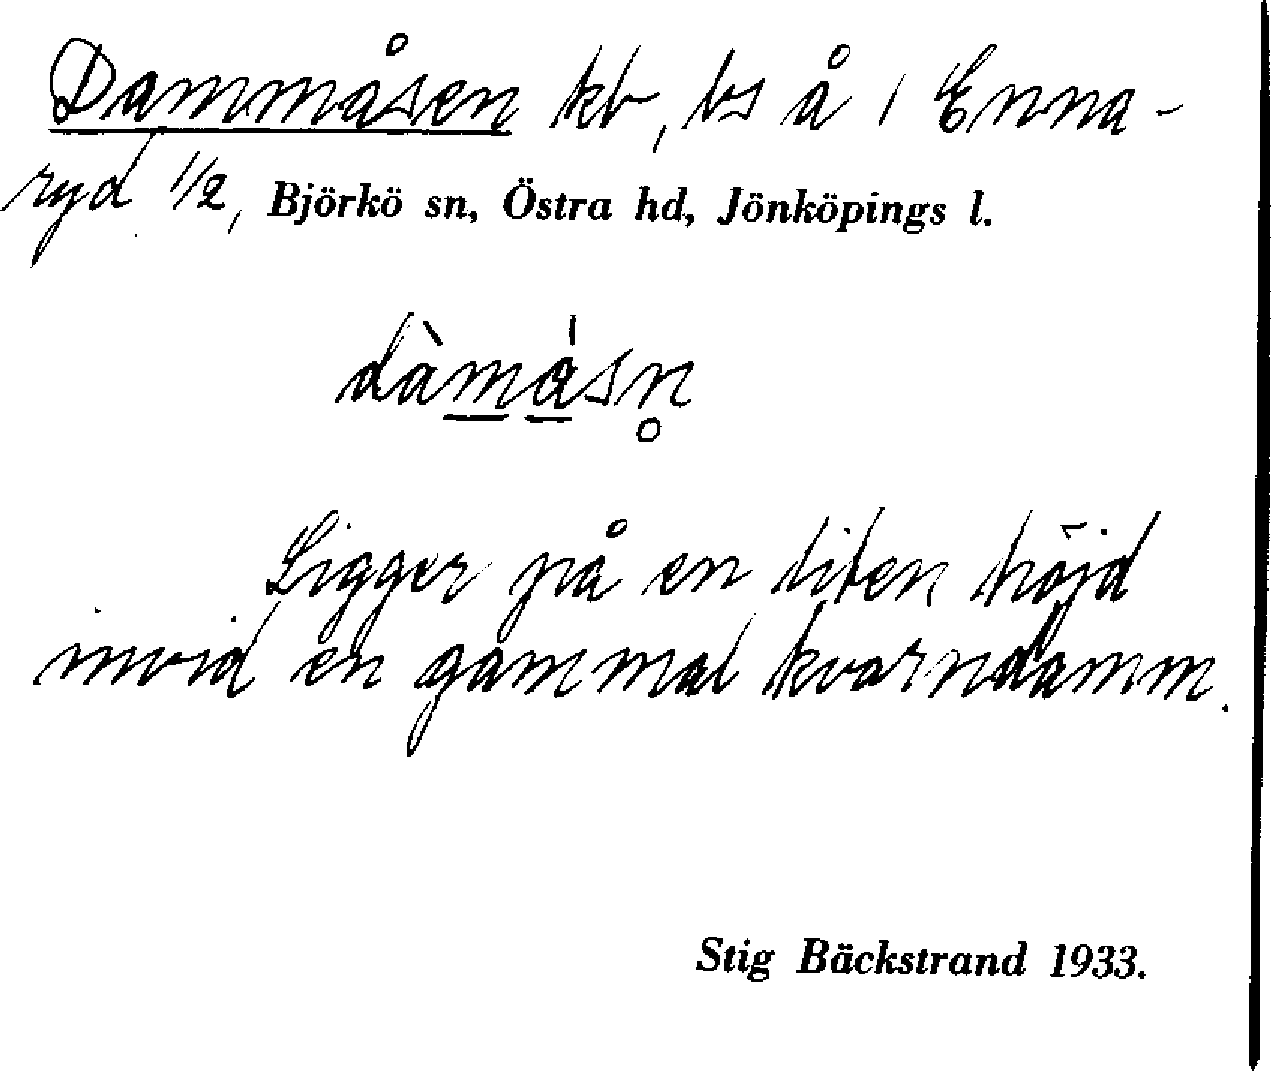 Dammåsen kb, bs å 1 Enna-
ryd 1/2, Björkö sn, Östra hd, Jönköpings l.
dàmåsn̥
Ligger på en liten höjd
invid en gammal kvarndamm.
Stig Bäckstrand 1933.